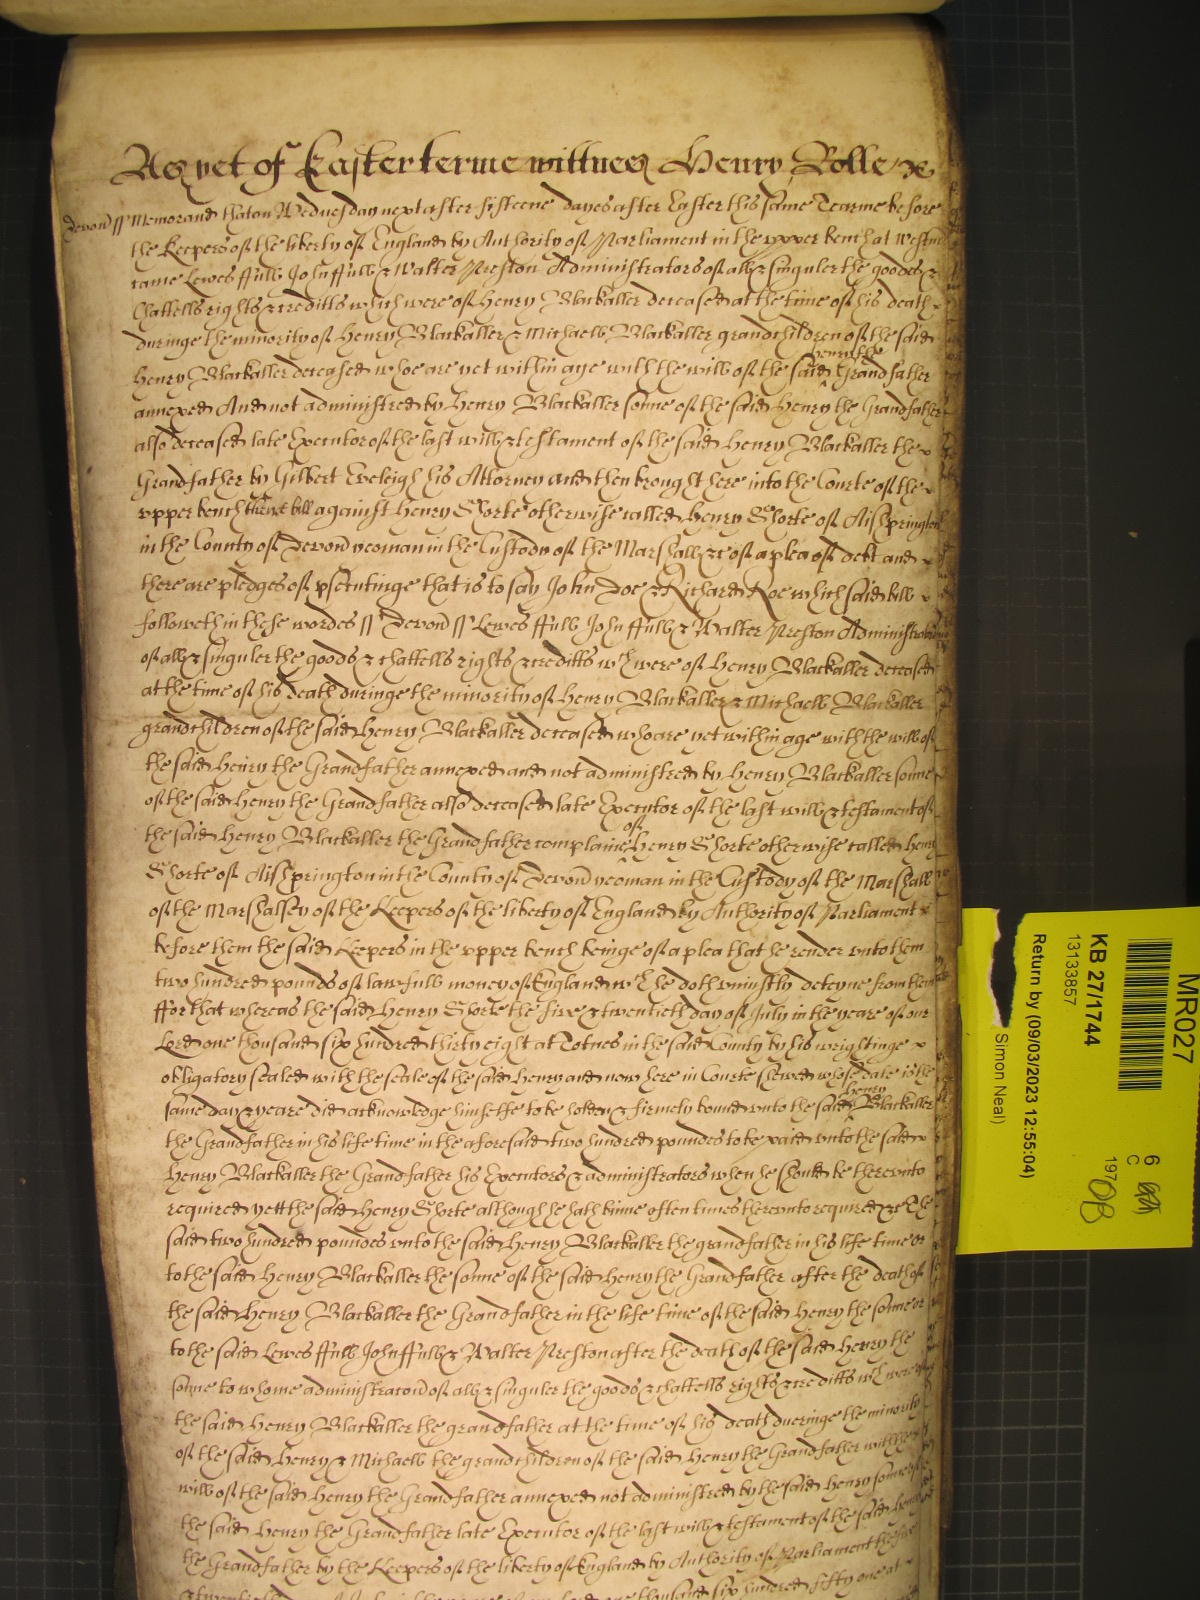 As yet of Easter terme wittnes Henry Rolle &c
Devon ss Memorand that on Wednesday next after fifteene dayes after Easter this same Tearme before
the Keepers of the liberty of England by Authority of Parliament in the vpper bench at Westm
came Lewes ffull John ffull & Walter Preston Administrators of all & singuler the goodes &
Chattells rights & creditts which were of Henry Blackaller deceased at the time of his death
duringe the minority of Henry Blackaller & Michaell Blackaller grandchildren of the said
Henry Blackaller deceased whoe are yet within age with the will of the said Henry the Grandfather
annexed And not administred by Henry Blackaller sonne of the said Henry the Grandfather
also deceased late Executor of the last will & testament of the said Henry Blackaller the
Grandfather by Gilbert Eveleigh his Attorney and then brought here into the Courte of the
vpper bench there bill against Henry Shorte otherwise called Henry Shorte of Aishprington
in the County of Devon yeoman in the Custody of the Marshall &c of a plea of debt and
there are pledges of psecutinge that is to say John Doe & Richard Roe which said bill
followeth in these wordes ss Devon ss Lewes ffull John ffull & Walter Preston Administrators
of all & singuler the goods & chattells rights & creditts wch were of Henry Blackaller deceased
at the time of his death duringe the minority of Henry Blackaller & Michaell Blackaller
grandchildren of the said Henry Blackaller deceased who are yet within age with the will of
the said Henry the Grandfather annexed and not administred by Henry Blackaller sonne
of the said Henry the Grandfather also deceased late Executor of the last will & testament of
the said Henry Blackaller the Grandfather complaine of Henry Shorte otherwise called Henry
Shorte of Aishprington in the County of Devon yeoman in the Custody of the Marshall
of the Marshalsey of the Keepers of the liberty of England by Authority of Parliament
before them the said Keepers in the vpper bench beinge of a plea that he render vnto them
two hundred pounds of lawfull money of England wch he doth viniustly deteyne from them
ffor that whereas the said Henry Shorte the five & twentieth day of July in the yeare of our
Lord one thousand six hundred thirty eight at Totnes in the said County by his wrightinge
obligatory sealed with the seale of the said Henry and now here in Courte shewed whose date is the
same day & yeare did acknowledge himselfe to be holden & firmely bound vnto the said Henry Blackaller
the Grandfather in his life time in the aforesaid two hundred poundes to be paid vnto the said
Henry Blackaller the Grandfather his Executors & administrators when he should be therevnto
required yett the said Henry Shorte although he hath binne often times therevnto required &c The
said two hundred poundes vnto the said Henry Blackaller the grandfather in his life time or
to the said Henry Blackaller the sonne of the said Henry the Grandfather after the death of
the said Henry Blackaller the Grandfather in the life time of the said Henry the sonne or
to the said Lewes ffull John ffull & Walter Preston after the death of the said Henry the
sonne to whome administracon of all & singuler the goods & chattells rights & creditts wch were of
the said Henry Blackaller the grandfather at the time of his death dueringe the minority
of the said Henry & Michaell the grandchildren of the said Henry the Grandfather with the
will of the said Henry the Grandfather annexed not administred by the said Henry sonne of
the said Henry the Grandfather late Executor of the last will & testament of the said Henry
the Grandfather by the Keepers of the liberty of England by Authority of Parliament the five
thousand six hundred fifty one at
MR027
6
C
197
08
KB 27/1744
13133857
Return by (09/03/2023 12:55:04)
Simon Neal)